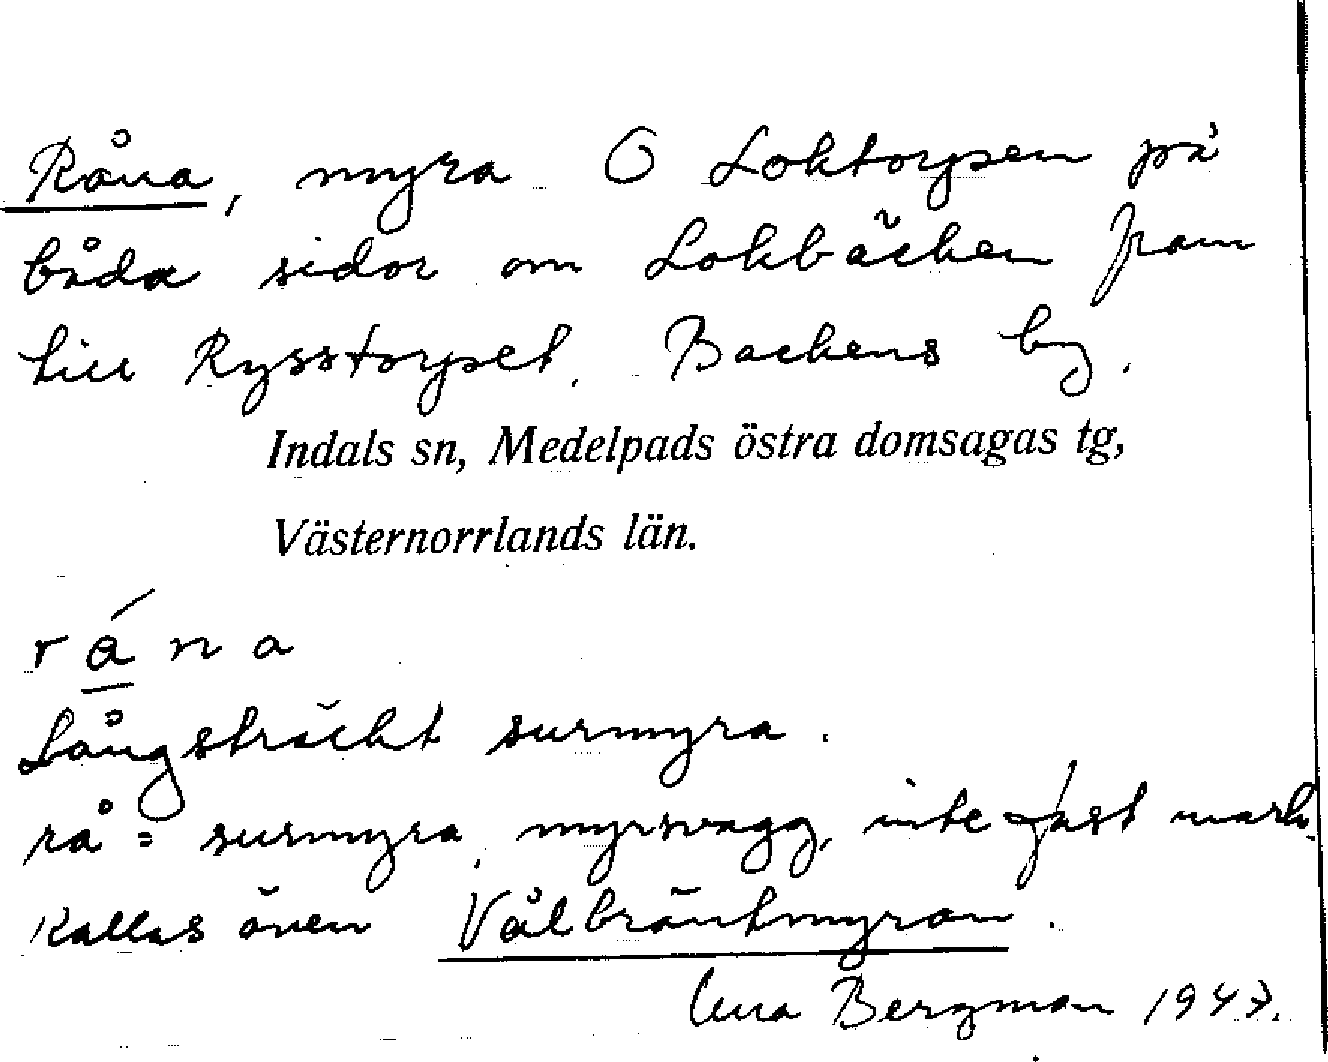 Råna, myra Ö Loktorpen på
båda sidor om Lokbäcken fram
till Rysstorpet. Backens by.
Indals sn, Medelpads östra domsagas tg,
Västernorrlands län.
råna
Långsträckt surmyra.
rå = surmyra, myrsvagg, inte fast mark.
Kallas även Vålbräntmyran.
Bergman 1947.